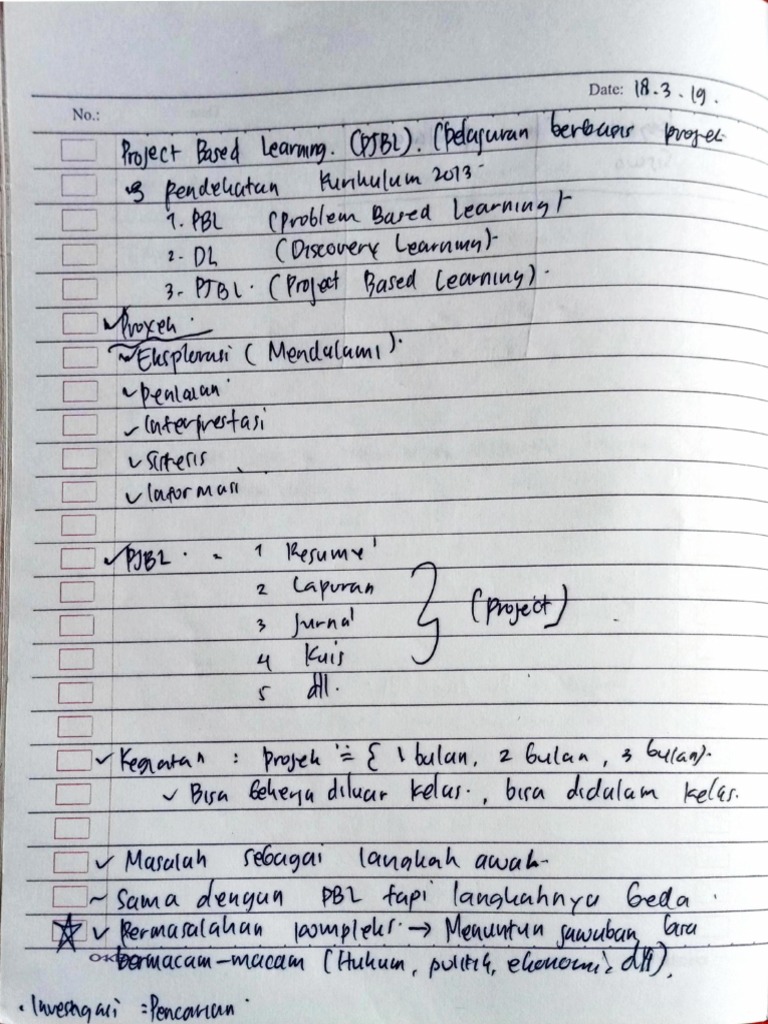 Date: 18.3.19.
No.:
Project Based Learning. (PJBL). (Pelajaran berbasis projek
3 pendekatan Kurikulum 2013
1. PBL (Problem Based Learning)
2. DL (Discovery Learning)
3. PJBL. (Project Based Learning).
Proyek.
Eksplorasi (Mendalami).
Penilaian
Interprestasi
Sintesis
Informasi
PJBL. = 1 Resume
2 Laporan
3 Jurnal
4 Kuis
5 dll.
(Project)
Kegiatan : projek = { 1 bulan, 2 bulan, 3 bulan).
Bisa bekerja diluar kelas., bisa didalam kelas.
Masalah sebagai langkah awal
Sama dengan PBL tapi langkahnya beda.
Permasalahan kompleks. → Menuntun jawaban
bermacam-macam (Hukum, politik, ekonomi dll),
. Investigasi = Pencarian.